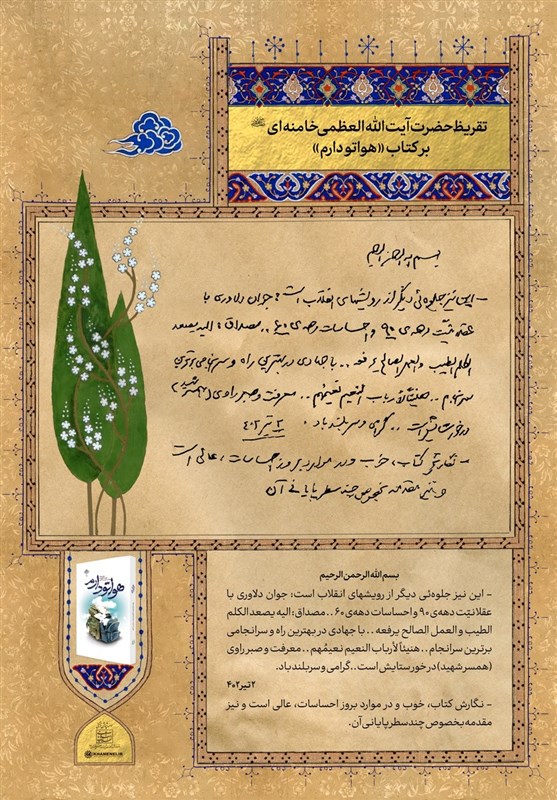 تقریظ حضرت آیت الله العظمی خامنه‌ای
بر کتاب «هواتو دارم»
بسم الله الرحمن الرحیم
- این نیز جلوه‌ئی دیگر از رویشهای انقلاب است: جوان دلاوری با
عقلانیّت دهه‌ی ۹۰ و احساسات دهه‌ی ۶۰ .. مصداق: الیه یصعد
الکلم الطیب و العمل الصالح یرفعه .. با جهادی در بهترین راه و سرانجامی برترین
سرانجام .. هنیئاً لأرباب النعیم نعیمُهم .. معرفت و صبر راوی (همسر شهید)
در خور ستایش است .. گرامی و سربلند باد.
۲ تیر ۴۰۲
- نگارش کتاب، خوب و در موارد بروز احساسات، عالی است
و نیز مقدمه بخصوص چند سطر پایانی آن
هواتو دارم
بسم الله الرحمن الرحیم
- این نیز جلوه‌ئی دیگر از رویشهای انقلاب است: جوان دلاوری با
عقلانیّت دهه‌ی ۹۰ و احساسات دهه‌ی ۶۰ .. مصداق: الیه یصعد الکلم
الطیب و العمل الصالح یرفعه .. با جهادی در بهترین راه و سرانجامی
برترین سرانجام .. هنیئاً لأرباب النعیم نعیمُهم .. معرفت و صبر راوی
(همسر شهید) در خور ستایش است .. گرامی و سربلند باد.
۲ تیر ۴۰۲
- نگارش کتاب، خوب و در موارد بروز احساسات، عالی است و نیز
مقدمه بخصوص چند سطر پایانی آن.
KHAMENEI.IR